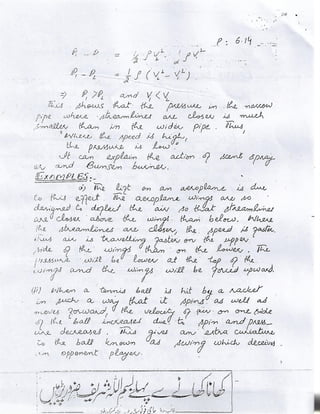 P: 6.14
P₁ - P₂ = ½ ρ V₂² - ½ ρ V₁²
P₁ - P₂ = ½ ρ (V₂² - V₁²)
⇒ P₁ > P₂ and V₁ < V₂
This shows that the pressure in the narrow
pipe where streamlines are closer is much
smaller than in the wider pipe. Thus,
"Where the speed is high,
the pressure is low"
It can explain the action of scent spray
or and Bunsen burner.
EXAMPLES:-
i) The lift on an aeroplane is due
to this effect. The aeroplane wings are so
designed to deflect the air so that streamlines
are closer above the wings than below. Where
the streamlines are closer, the speed is faster
thus air is travelling faster on the upper
side of the wings than on the lower. The
pressure will be lower at the top of the
wings and the wings will be forced upward.
(ii) When a tennis ball is hit by a racket
in such a way that it spins as well as
moves forward, the velocity of air on one side
of the ball increases due to spin and press
ure decreases. This gives an extra curvature
to the ball known as swing which deceives
an opponent player.
کھانا کھانے سے پہلے بسم اللہ شریف ضرور پڑھیں